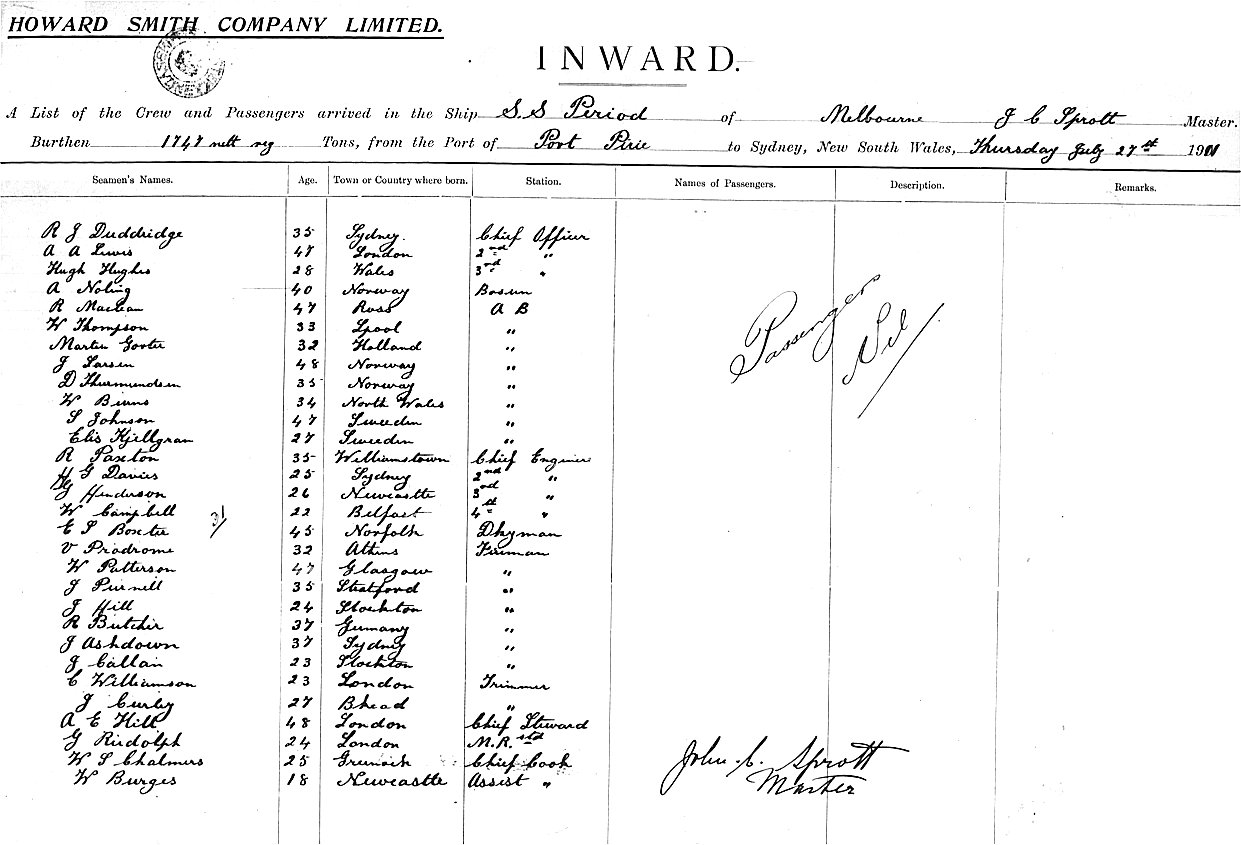 HOWARD SMITH COMPANY LIMITED.
INWARD.
A List of the Crew and Passengers arrived in the Ship S.S Period of Melbourne J C Sprott Master.
Burthen 1747 nett reg Tons, from the Port of Port Pirie to Sydney, New South Wales, Thursday July 27st 1901
Seamen's Names. Age. Town or Country where born. Station. Names of Passengers. Description. Remarks.
R J Duddridge 35 Sydney. Chief Officer
A A Lewis 47 London 2nd "
Hugh Hughes 28 Wales 3rd "
A Noling 40 Norway Bosun
R Maclean 47 Ross A B
W Thompson 33 Lpool "
Martin Gooter 32 Holland "
J Larsen 48 Norway "
D Thurmundsen 35 Norway "
W Binns 34 North Wales "
S Johnson 47 Sweeden "
Elis Kjellgran 27 Sweeden "
R Paxton 35 Williamstown Chief Engineer
H G Davies 25 Sydney 2nd "
J Henderson 26 Newcastle 3rd "
W Campbell 22 Belfast 4th "
31/
E S Boxter 45 Norfolk Dkyman
V Prodrome 32 Athins Fireman
W Patterson 47 Glasgow "
J Purnell 35 Stratford "
J Hill 24 Stockton "
R Butcher 37 Germany "
J Ashdown 37 Sydney "
J Callan 23 Stockton "
C Williamson 23 London Trimmer
J Curley 27 Bhead "
A E Hill 48 London Chief Steward
G Rudolph 24 London M.R. std
W S Chalmers 25 Greenock Chief Cook
W Burges 18 Newcastle Assist "
Passenger
Nil
John. C. Sprott
Master